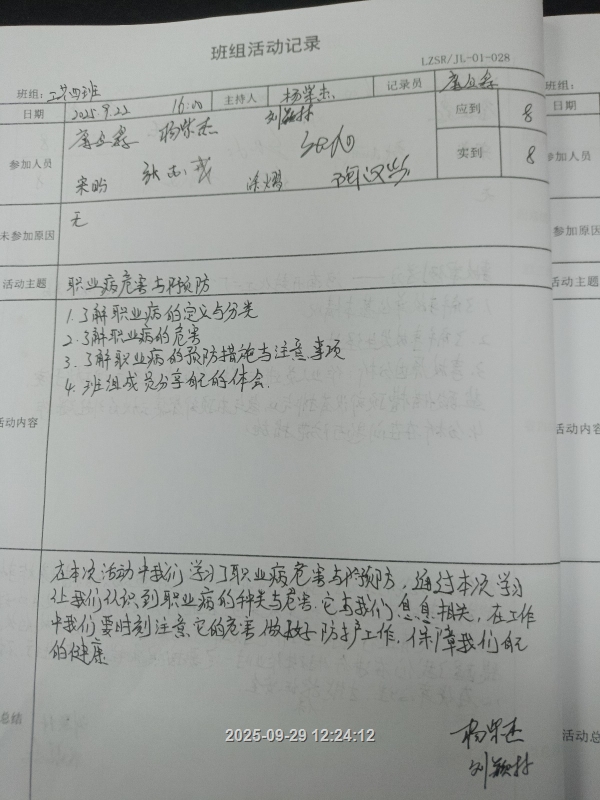 班组活动记录
LZSR/JL-01-028
班组: 四班
班组:
日期 2025.9.22 16:00 主持人 杨荣杰 记录员
日期
参加人员 杨荣杰 刘颖村 应到 8
宋盼 张志成 涂熠 实到 8
参加人员
未参加原因 无
参加原因
活动主题 职业病危害与预防
活动主题
活动内容
1.了解职业病的定义与分类
2.了解职业病的危害
3.了解职业病的预防措施与注意事项
4.班组成员分享自己的体会
活动内容
总结
在本次活动中我们学习了职业病危害与预防,通过本次学习
让我们认识到职业病的种类与危害.它与我们息息相关,在工作
中我们要时刻注意它的危害做好防护工作,保障我们自己
的健康
杨荣杰
刘颖村
活动总
2025-09-29 12:24:12